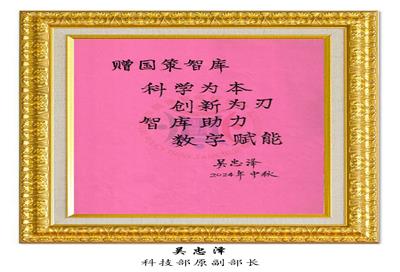 赠国策智库
科学为本
创新为刃
智库助力
数字赋能
吴忠泽
2024年中秋
吴忠泽
科技部原副部长